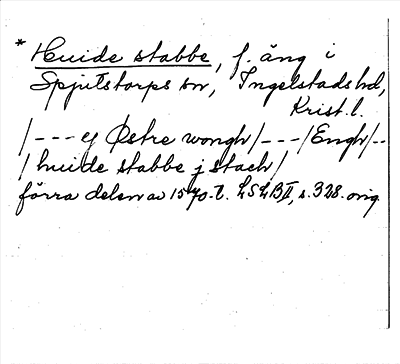 * Huide stabbe, f. äng i
Spjutstorps sn, Ingelstads hd,
Krist. l.
/--- ey Østre wongh/---/Engh/--
/huide stabbe j stach/
förra delen av 1570-t. LSLB II, s. 328. orig.